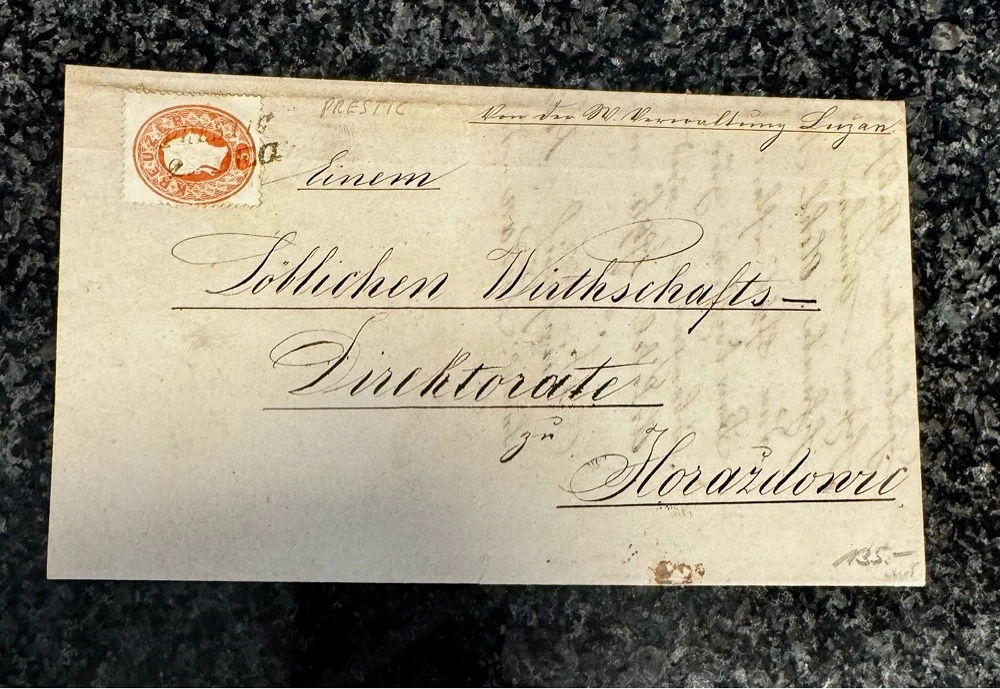 PRESTIC
Von der W. Verwaltung Lužan.
KREUZER
Einem
Löblichen Wirthschafts-
Direktorate
zu
Horaždowic
135.-